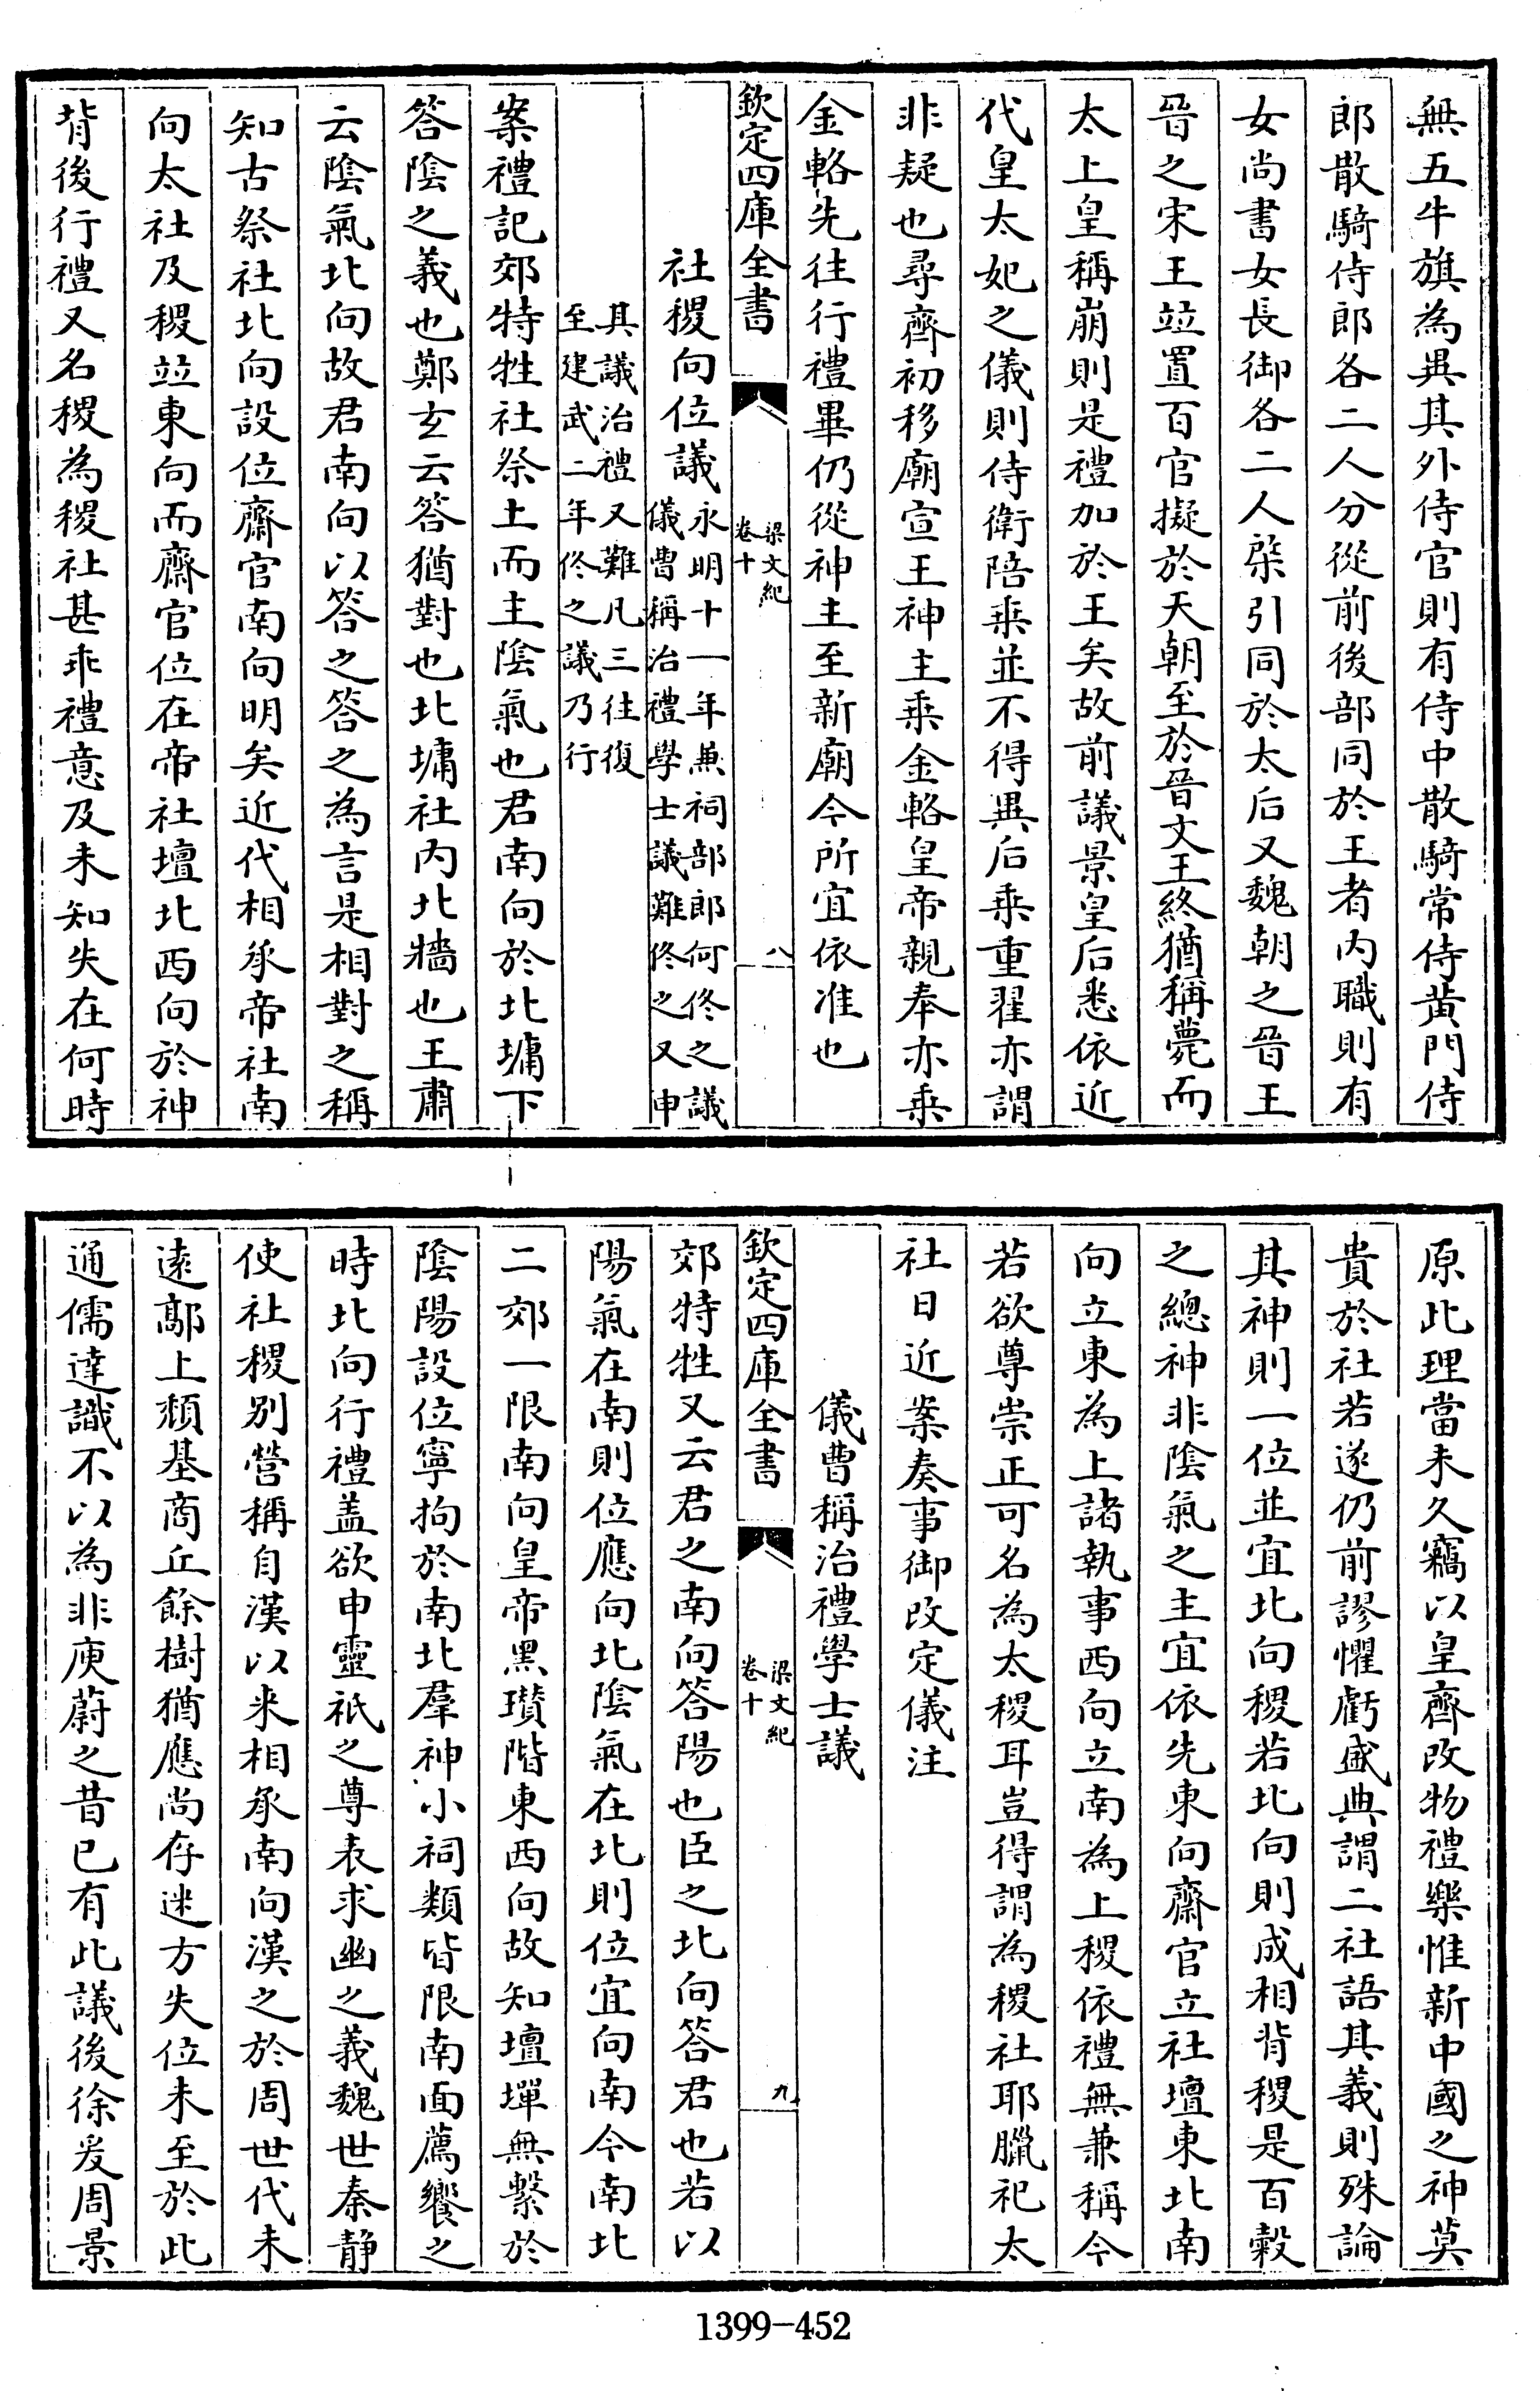 無五牛旗為異其外侍官則有侍中散騎常侍黄門侍
郎散騎侍郎各二人分從前後部同於王者内職則有
女尚書女長御各二人棨引同於太后又魏朝之晉王
晉之宋王竝置百官擬於天朝至於晉文王終猶稱薨而
太上皇稱崩則是禮加於王矣故前議景皇后悉依近
代皇太妃之儀則侍衛陪乗並不得異后乗重翟亦謂
非疑也尋齊初移廟宣王神主乗金輅皇帝親奉亦乗
金輅先往行禮畢仍從神主至新廟今所宜依准也
欽定四庫全書
梁文紀
卷十
八
社稷向位議
永明十一年兼祠部郎何佟之議
儀曹稱治禮學士議難佟之又申
其議治禮又難凡三往復
至建武二年佟之議乃行
案禮記郊特牲社祭土而主陰氣也君南向於北墉下
答陰之義也鄭玄云答猶對也北墉社内北牆也王肅
云陰氣北向故君南向以答之答之為言是相對之稱
知古祭社北向設位齋官南向明矣近代相承帝社南
向太社及稷竝東向而齋官位在帝社壇北西向於神
背後行禮又名稷為稷社甚乖禮意及未知失在何時
原此理當未久竊以皇齊改物禮樂惟新中國之神莫
貴於社若遂仍前謬懼虧盛典謂二社語其義則殊論
其神則一位並宜北向稷若北向則成相背稷是百穀
之總神非陰氣之主宜依先東向齋官立社壇東北南
向立東為上諸執事西向立南為上稷依禮無兼稱今
若欲尊崇正可名為太稷耳豈得謂為稷社耶臘祀太
社日近案奏事御改定儀注
儀曹稱治禮學士議
欽定四庫全書
梁文紀
卷十
九
郊特牲又云君之南向答陽也臣之北向答君也若以
陽氣在南則位應向北陰氣在北則位宜向南今南北
二郊一限南向皇帝黑瓚階東西向故知壇墠無繫於
陰陽設位寧拘於南北羣神小祠類皆限南面薦饗之
時北向行禮盖欲申靈祇之尊表求幽之義魏世秦静
使社稷别營稱自漢以来相承南向漢之於周世代未
逺鄗上頺基商丘餘樹猶應尚存迷方失位未至於此
通儒達識不以為非庾蔚之昔已有此議後徐爰周景
1399-452